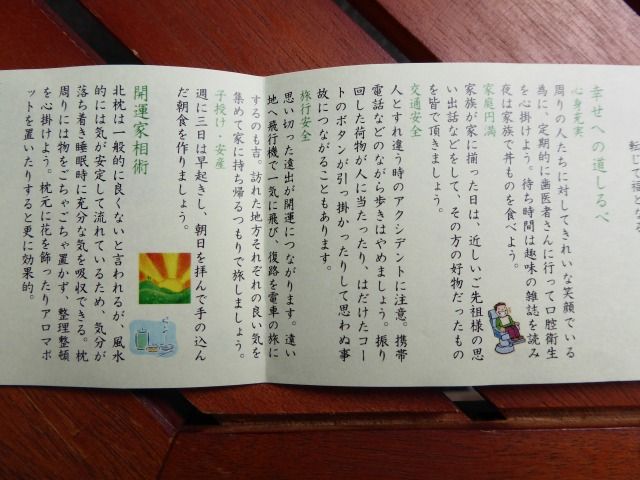 転じて福となる
幸せへの道しるべ
心身充実
周りの人たちに対してきれいな笑顔でいる
為に、定期的に歯医者さんに行って口腔衛生
を心掛けよう。待ち時間は趣味の雑誌を読み
夜は家族で丼ものを食べよう。
家庭円満
家族が家に揃った日は、近しいご先祖様の思
い出話などをして、その方の好物だったもの
を皆で頂きましょう。
交通安全
人とすれ違う時のアクシデントに注意。携帯
電話などのながら歩きはやめましょう。振り
回した荷物が人に当たったり、はだけたコー
トのボタンが引っ掛かったりして思わぬ事
故につながることもあります。
旅行安全
思い切った遠出が開運につながります。遠い
地へ飛行機で一気に飛び、復路を電車の旅に
するのも吉。訪れた地方それぞれの良い気を
集めて家に持ち帰るつもりで旅しましょう。
子授け・安産
週に三日は早起きし、朝日を拝んで手の込ん
だ朝食を作りましょう。
開運家相術
北枕は一般的に良くないと言われるが、風水
的には気が安定して流れているため、気分が
落ち着き睡眠時に充分な気を吸収できる。枕
周りには物をごちゃごちゃ置かず、整理整頓
を心掛けよう。枕元に花を飾ったりアロマポ
ットを置いたりすると更に効果的。